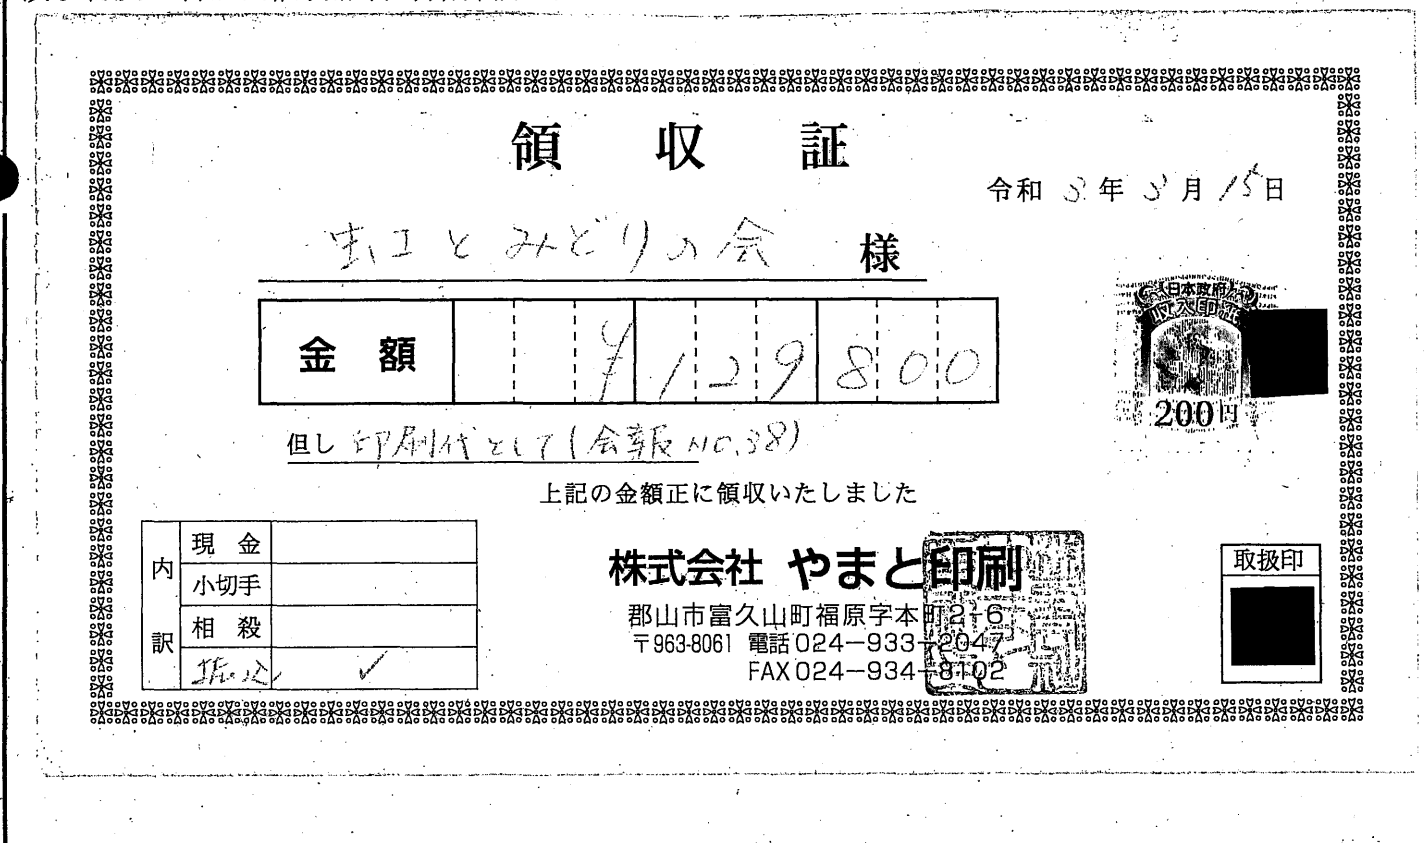 領収証
令和 3年 3月 15日
虹とみどりの会 様
金額 ¥129800
但し 印刷代として(会報NO.38)
上記の金額正に領収いたしました
日本政府
収入印紙
200円
内訳
現金
小切手
相殺
振込 ✓
株式会社 やまと印刷
郡山市富久山町福原字本町2-6
〒963-8061 電話024-933-2047
FAX024-934-8102
取扱印